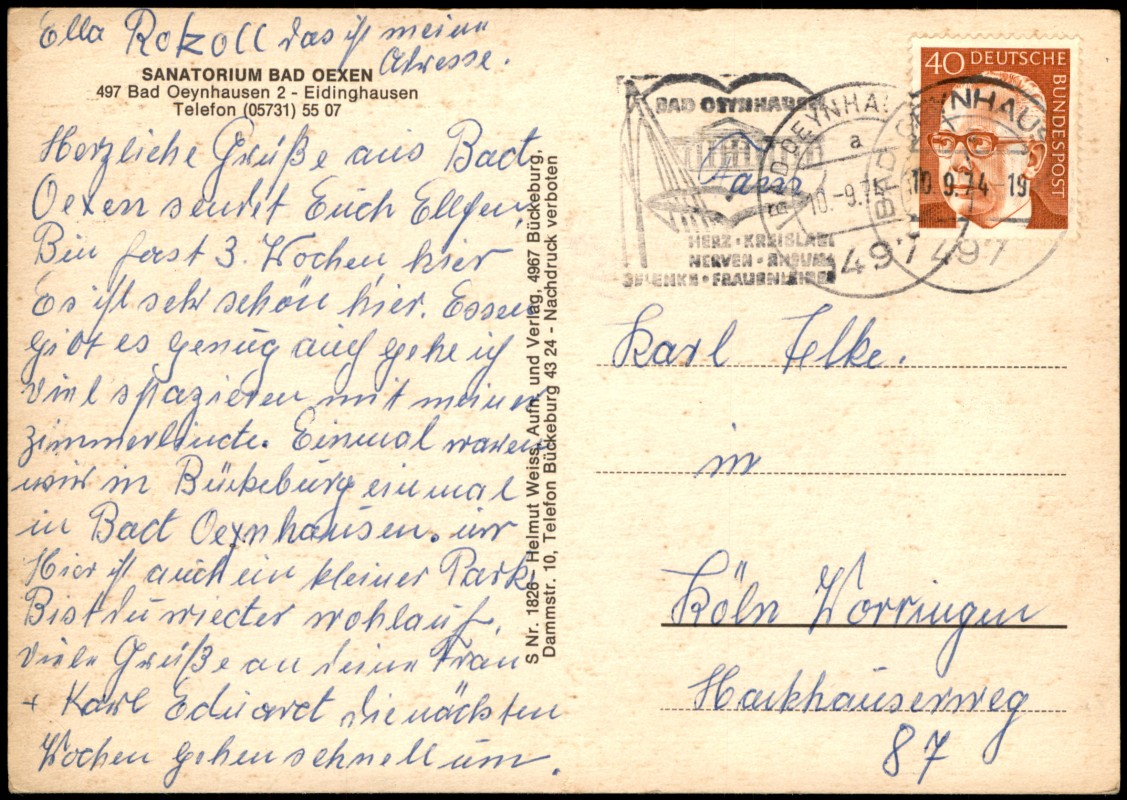 Ella Rokzoll das ist meine
Adresse.
SANATORIUM BAD OEXEN
497 Bad Oeynhausen 2 - Eidinghausen
Telefon (05731) 55 07
Herzliche Grüße aus Bad
Oexen sendet Euch Ellchen,
Bin fast 3. Wochen hier
Es ist sehr schön hier. Essen
gibt es genug auch gehe ich
viel spazieren mit meiner
Zimmerleute. Einmal waren
wir in Bückeburg einmal
in Bad Oeynhausen.
Hier ist auch ein kleiner Park
Bist du wieder wohlauf.
Viele Grüße an deine Frau
+ Karl Eduard die nächsten
Wochen gehen schnell um.
S Nr. 1826 - Helmut Weiss, Aufn. und Verlag, 4967 Bückeburg,
Dammstr. 10, Telefon Bückeburg 43 24 - Nachdruck verboten
BAD OEYNHAUSEN
HERZ · KREISLAUF
NERVEN · RHEUMA
GELENKE · FRAUENLEIDEN
BAD OEYNHAUSEN
a
10.-9.74
497
BAD OEYNHAUSEN
10.9.74-19
497
40 DEUTSCHE
BUNDESPOST
Fam
Karl Elke.
in
Köln Worringen
Hackhauserweg
87